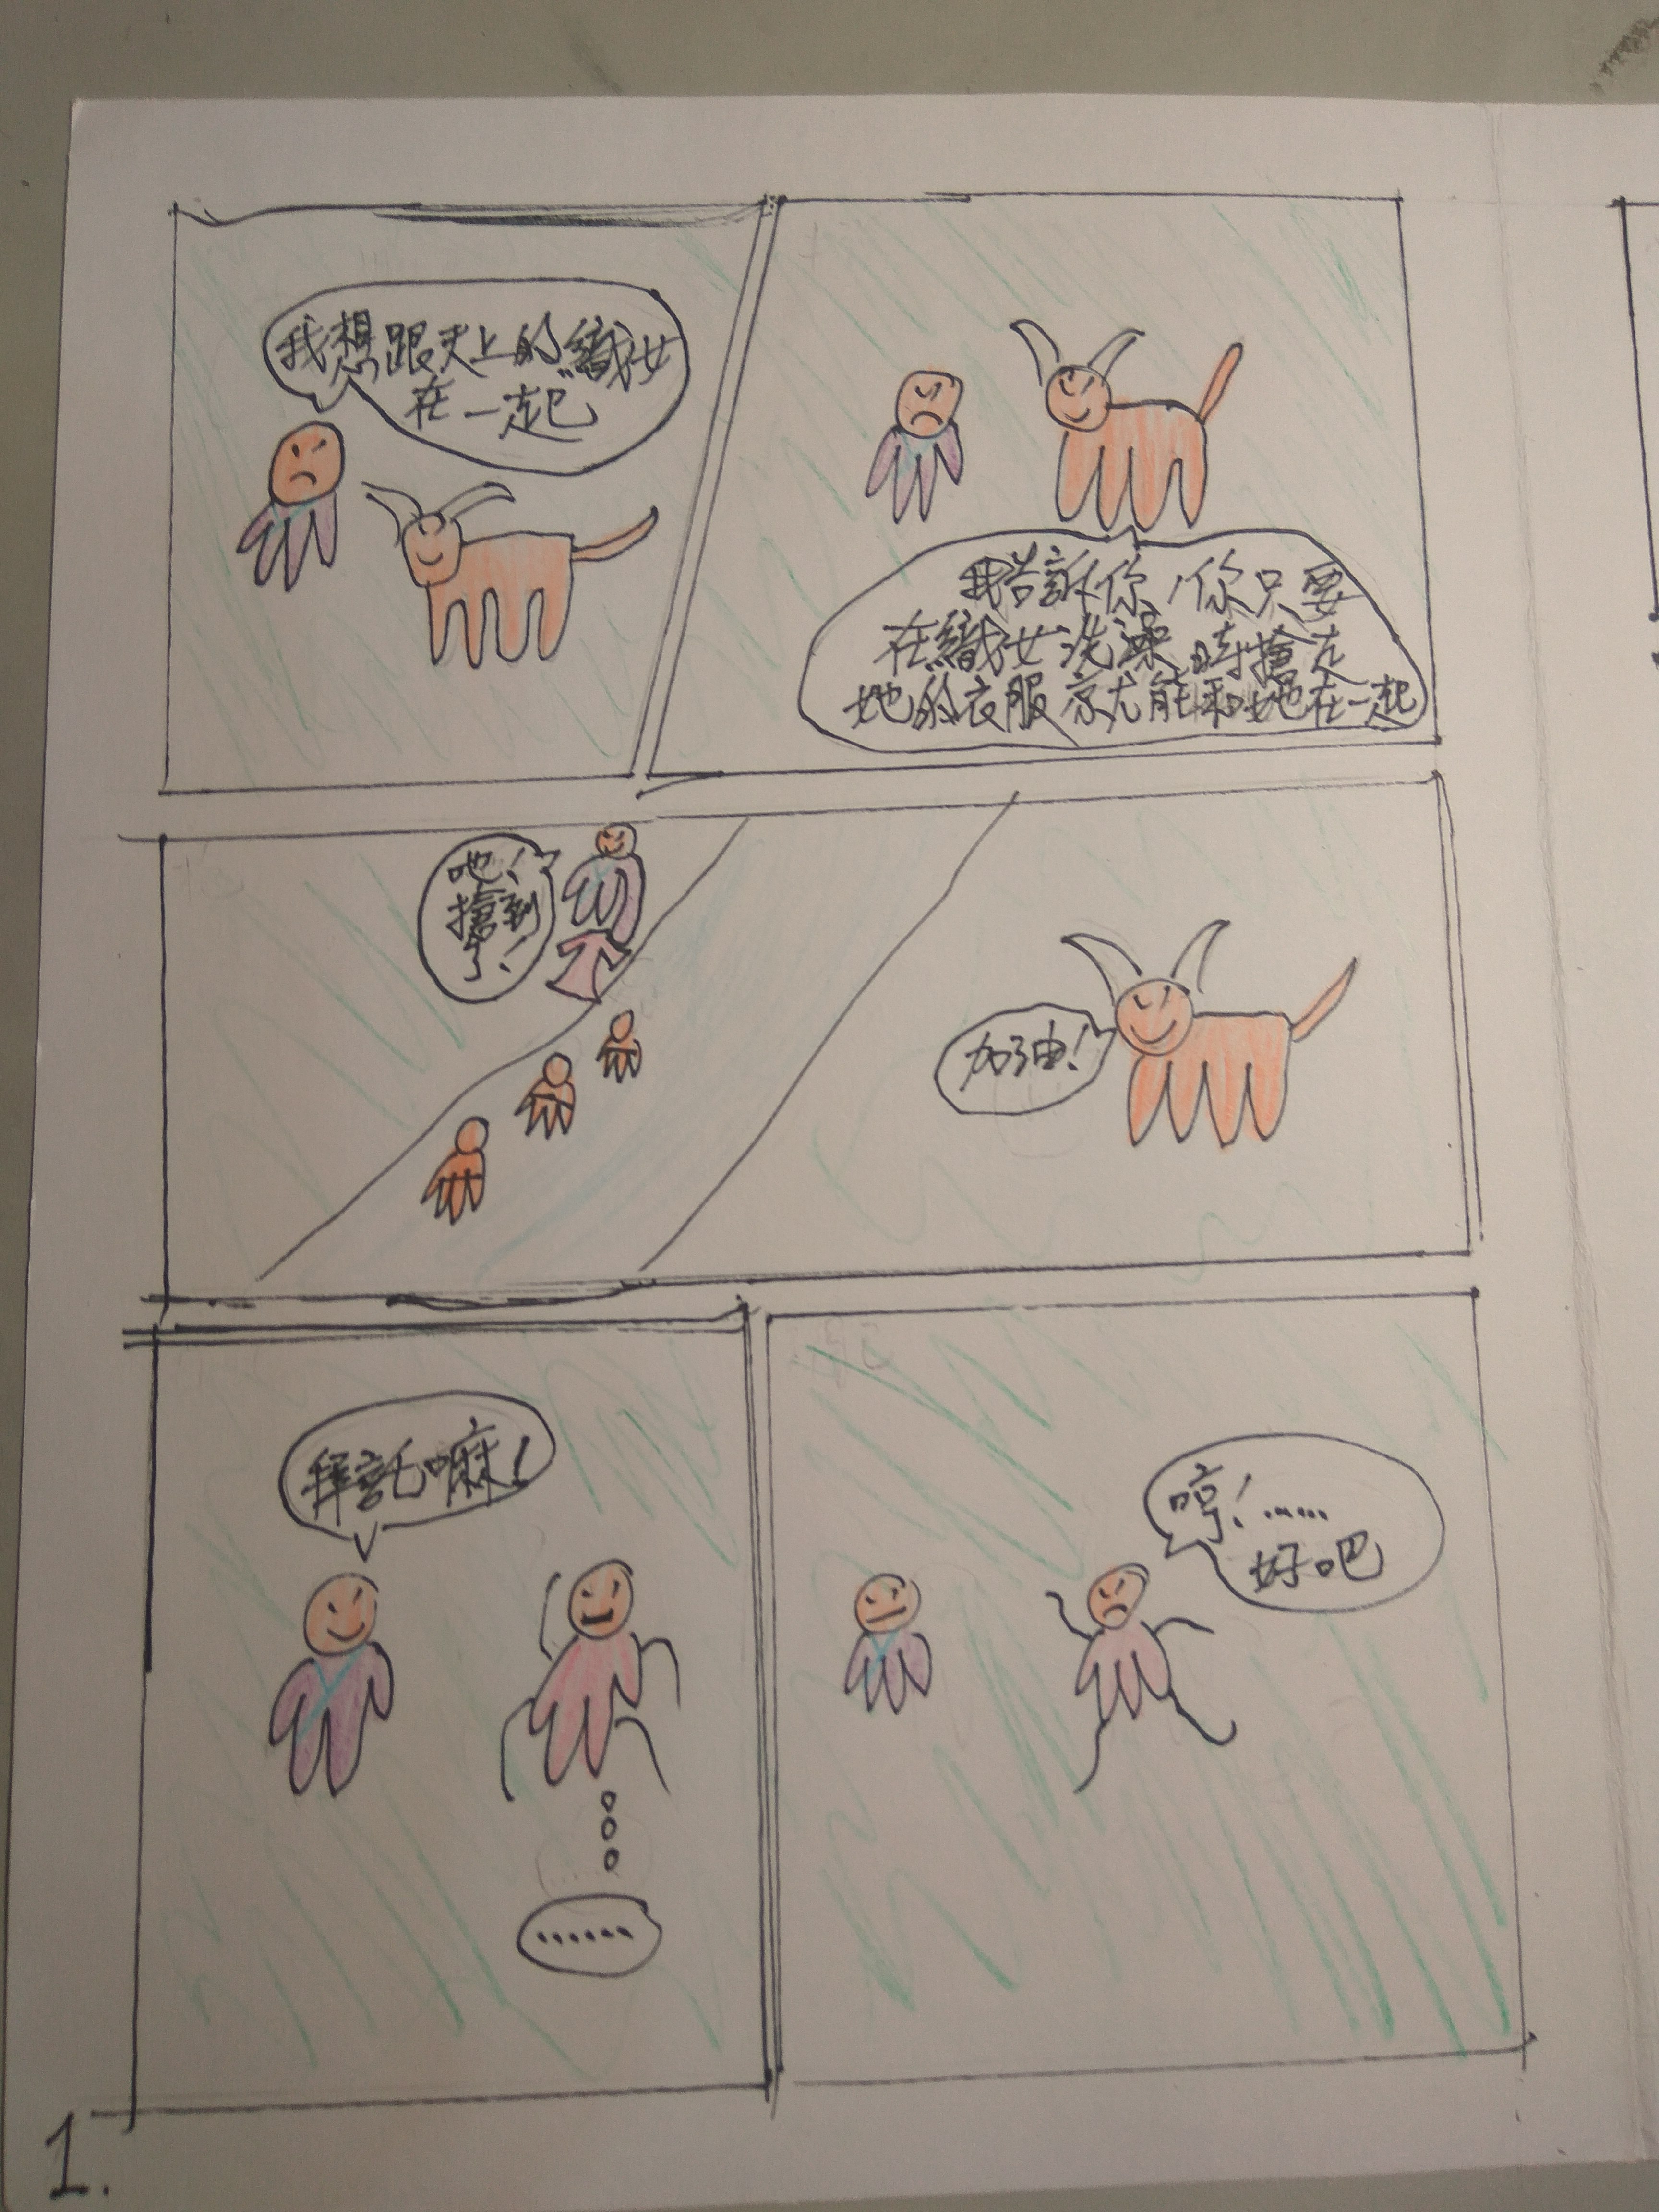 我想跟天上的織女
在一起
我告訴你,你只要
在織女洗澡時搶走
她的衣服就能和她在一起
吔!
搶到
了!
加油!
拜託嘛!
......
哼!......
好吧
1.